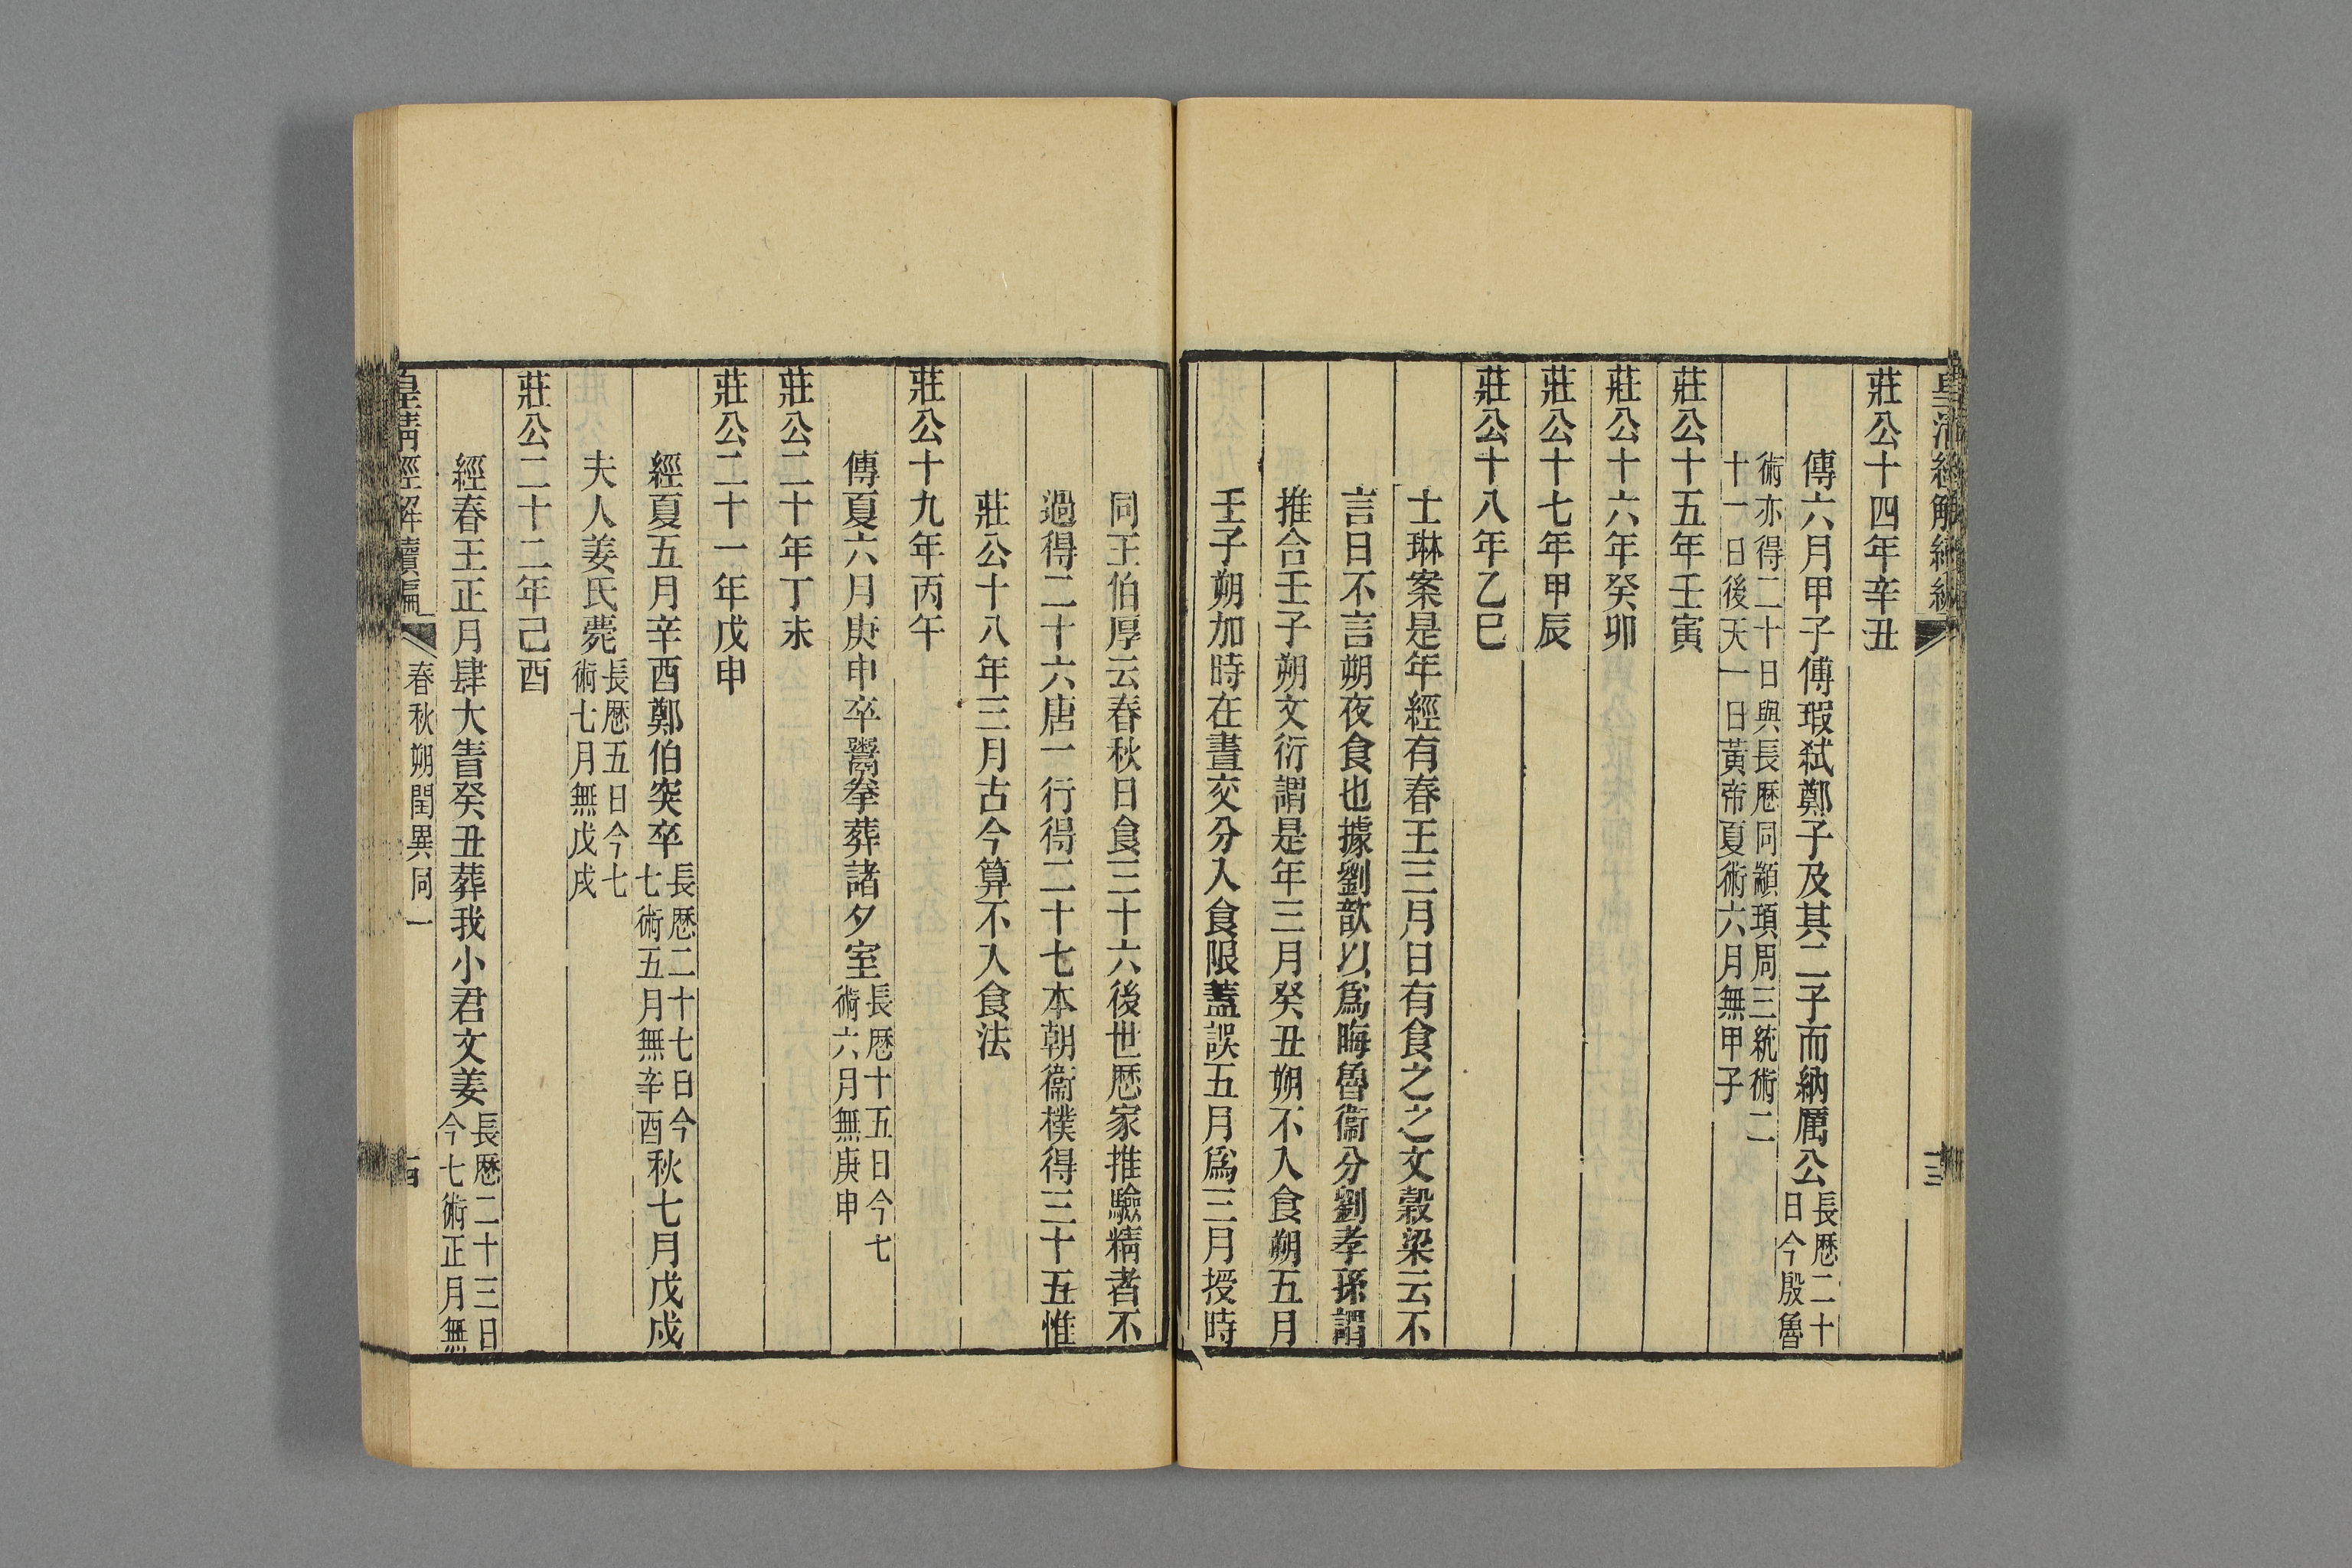 莊公十四年辛丑
傳六月甲子傅瑕弑鄭子及其二子而納厲公長厯二十日今殷魯
術亦得二十日與長厯同顓頊周三統術二十一日後天一日黃帝夏術六月無甲子
莊公十五年壬寅
莊公十六年癸卯
莊公十七年甲辰
莊公十八年乙巳
士琳案是年經有春王三月日有食之之文穀梁云不
言日不言朔夜食也據劉歆以爲晦魯衞分劉孝孫謂
推合壬子朔文衍謂是年三月癸丑朔不入食朔五月
壬子朔加時在晝交分入食限蓋誤五月爲三月授時
同王伯厚云春秋日食三十六後世厯家推驗精者不
過得二十六唐一行得二十七本朝衞樸得三十五惟
莊公十八年三月古今算不入食法
莊公十九年丙午
傳夏六月庚申卒鬻拳葬諸夕室長厯十五日今七術六月無庚申
莊公二十年丁未
莊公二十一年戊申
經夏五月辛酉鄭伯突卒長厯二十七日今七術五月無辛酉秋七月戊戌
夫人姜氏薨長厯五日今七術七月無戊戌
莊公二十二年己酉
經春王正月肆大眚癸丑葬我小君文姜長厯二十三日今七術正月無
皇清經解續編 春秋朔閏異同一